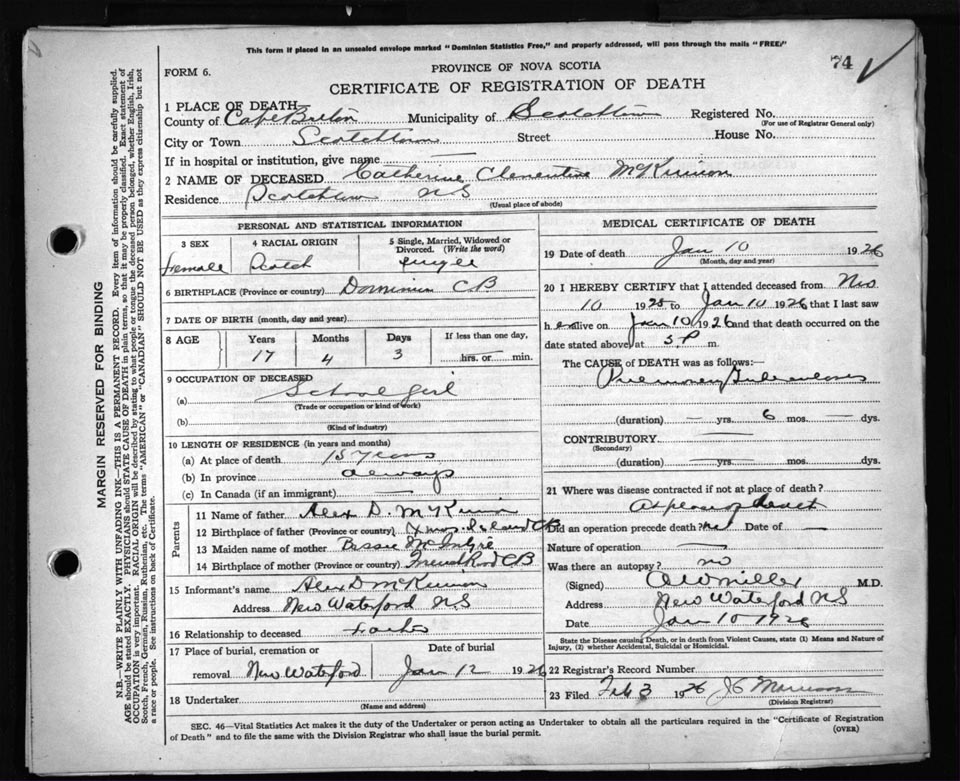 This form if placed in an unsealed envelope marked "Dominion Statistics Free," and properly addressed, will pass through the mails "FREE."
74
FORM 6.
PROVINCE OF NOVA SCOTIA
CERTIFICATE OF REGISTRATION OF DEATH
1 PLACE OF DEATH
County of Cape Breton Municipality of Scotchtown Registered No.
(For use of Registrar General only)
City or Town Scotchtown Street House No.
If in hospital or institution, give name —
2 NAME OF DECEASED Catherine Clementine McKinnon
Residence Scotchtown N S
(Usual place of abode)
PERSONAL AND STATISTICAL INFORMATION
3 SEX 4 RACIAL ORIGIN 5 Single, Married, Widowed or Divorced. (Write the word)
Female Scotch single
6 BIRTHPLACE (Province or country) Dominion C B
7 DATE OF BIRTH (month, day and year)
8 AGE Years Months Days If less than one day,
17 4 3 hrs. or min.
9 OCCUPATION OF DECEASED
(a) School girl
(Trade or occupation or kind of work)
(b)
(Kind of industry)
10 LENGTH OF RESIDENCE (in years and months)
(a) At place of death 15 years
(b) In province always
(c) In Canada (if an immigrant) —
Parents
11 Name of father Alex D. McKinnon
12 Birthplace of father (Province or country) Xmas Island CB
13 Maiden name of mother Bessie McIntyre
14 Birthplace of mother (Province or country) French Road CB
15 Informant's name Alex D McKinnon
Address New Waterford N.S
16 Relationship to deceased Father
17 Place of burial, cremation or removal Date of burial
New Waterford Jan 12 1926
18 Undertaker
(Name and address)
MEDICAL CERTIFICATE OF DEATH
19 Date of death Jan 10 1926
(Month, day and year)
20 I HEREBY CERTIFY that I attended deceased from Nov
10 1925 to Jan 10 1926 that I last saw
her alive on Jan 10 1926 and that death occurred on the
date stated above at 5 P m.
The CAUSE of DEATH was as follows:—
Pulmonary Tuberculosis
(duration) — yrs. 6 mos. — dys.
CONTRIBUTORY —
(Secondary)
(duration) — yrs. — mos. — dys.
21 Where was disease contracted if not at place of death?
At place of death
Did an operation precede death? no Date of —
Nature of operation —
Was there an autopsy? no
(Signed) A W Miller M.D.
Address New Waterford NS
Date Jan 10 1926
State the Disease causing Death, or in death from Violent Causes, state (1) Means and Nature of
Injury, (2) whether Accidental, Suicidal or Homicidal.
22 Registrar's Record Number
23 Filed Feb 3 1926 Morrison
(Division Registrar)
SEC. 46—Vital Statistics Act makes it the duty of the Undertaker or person acting as Undertaker to obtain all the particulars required in the "Certificate of Registration
of Death" and to file the same with the Division Registrar who shall issue the burial permit.
(OVER)
MARGIN RESERVED FOR BINDING
N.B.—WRITE PLAINLY WITH UNFADING INK—THIS IS A PERMANENT RECORD. Every item of information should be carefully supplied.
AGE should be stated EXACTLY. PHYSICIANS should STATE CAUSE OF DEATH in plain terms, so that it may be properly classified. Exact statement of
OCCUPATION is very important. RACIAL ORIGIN will be described by stating to what people or tongue the deceased person belonged, whether English, Irish,
Scotch, French, German, Russian, Ruthenian, etc. The terms "AMERICAN" or "CANADIAN" SHOULD NOT BE USED as they express citizenship but not
a race or people. See instructions on back of Certificate.